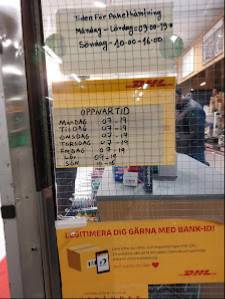 Tiden För Pakethämtning
Måndag - Lördag = 09:00-19:00
Söndag - 10:00 - 16:00
DHL
ÖPPNARTID
MÅNDAG 07-19
TISDAG 07-19
ONSDAG 07-19
TORSDAG 07-19
FREDAG 07-19
LÖR 09-19
SÖN 10-16
LEGITIMERA DIG GÄRNA MED BANK-ID!
DHL